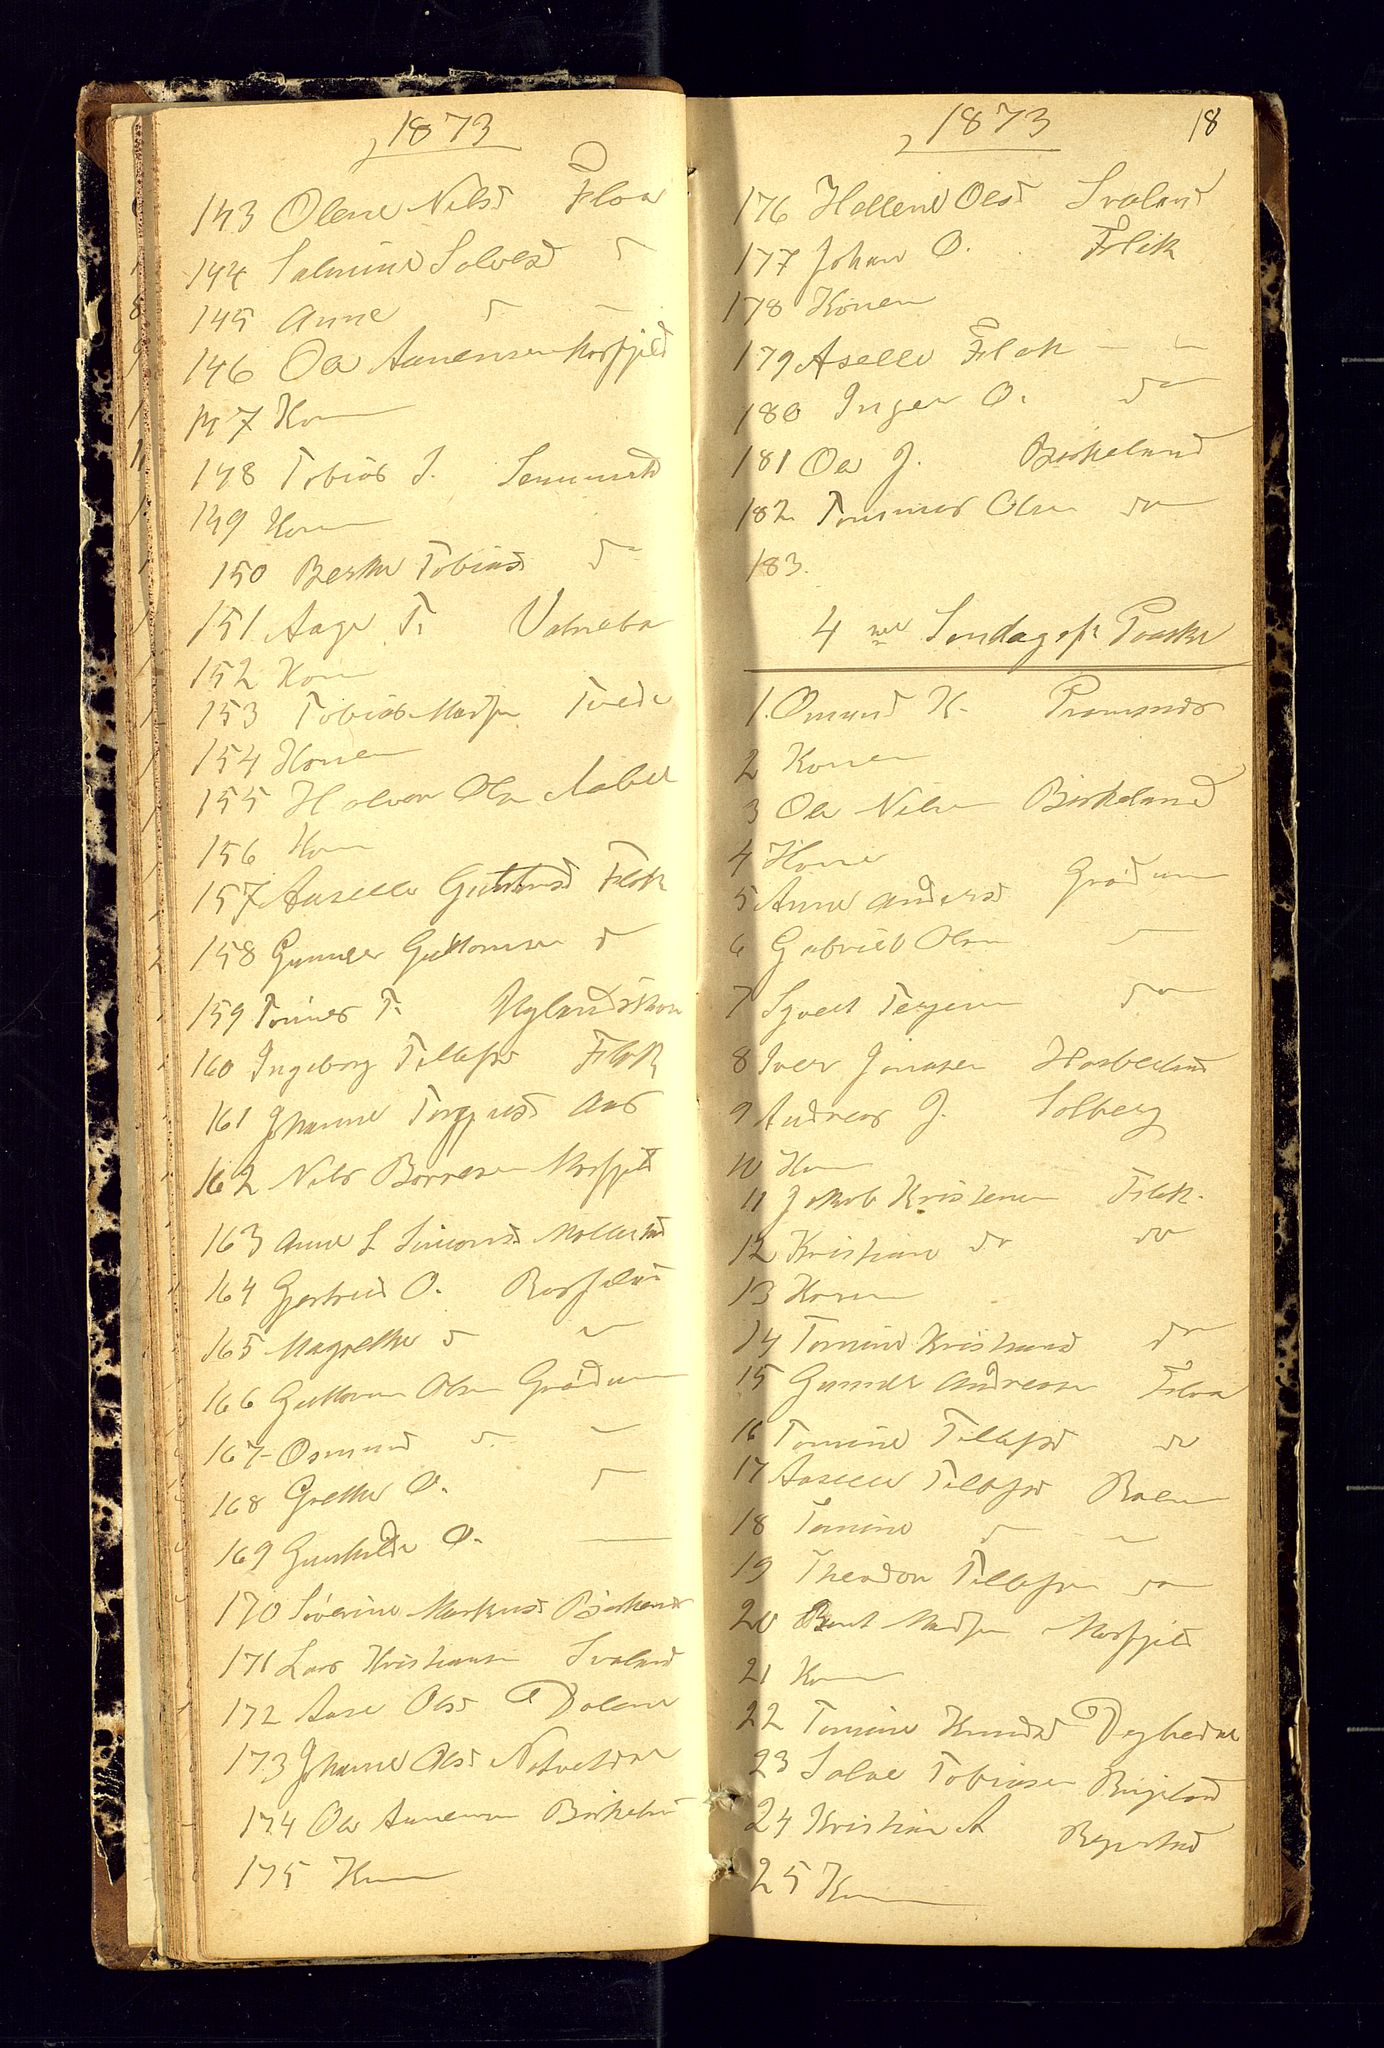 1873
143 Olene Nilsd Flaa
144 Salmine Solvesd d
145 Anne d —
146 Ole Aanensen Mosfjeld
147 Kon
148 Tobias S.
149 Kon
150 Berthe Tobiasd do
151 Aage T. Vatneba
152 Kon
153 Tobias Madsen Tvede
154 Konen
155 Halvor Olsn Aabel
156 Kon
157 Aaselle Guttormsd Flak
158 Gunder Guttormsen d
159 Tønnes T.
160 Ingeborg Tellefsd Flak
161 Johanne Torgjusd Aas
162 Nils Børresen Mosfjeld
163 Anne S. Simonsd Mollestad
164 Gjertrud O.
165 Magrethe d —
166 Guttorm Olsn Grødum
167 Osmund d. —
168 Grethe O. d
169 Gunhilde O. —
170 Severine Markusd Birkenes
171 Lars Kristiansen Svaland
172 Aase Olsd Dalene
173 Johanne Olsd
174 Ole Aanensen Birkeland
175 Kon
1873 18
176 Hellene Olsd Svaland
177 Johan O. Flak
178 Konen
179 Aselle Flak — —
180 Inger O. do
181 Ole J. Birkeland
182 Tommas Olsen do
183.
4 de Søndag ef Paaske
1. Omund K.
2 Konen
3 Ole Nilsen Birkeland
4 Konen
5 Anne Andersd Grødum
6 Gabriel Olsn —
7 Syvert Terjesen do
8 Iver Jonasen
9 Andreas J. Solberg
10 Kon
11 Jakob Kristensen Flak.
12 Kristian do do
13 Konen
14 Tomine Kristiansd do
15 Gunder Andreasen Flaa
16 Tomine Tellefsd do
17 Aaselle Tellefsd Boen
18 Tomine d —
19 Theodor Tellefsen do
20 Bernt Madsen Mosfjeld
21 Kon
22 Tomine Knudsd
23 Salve Tobiasen
24 Kristian A
25 Kon